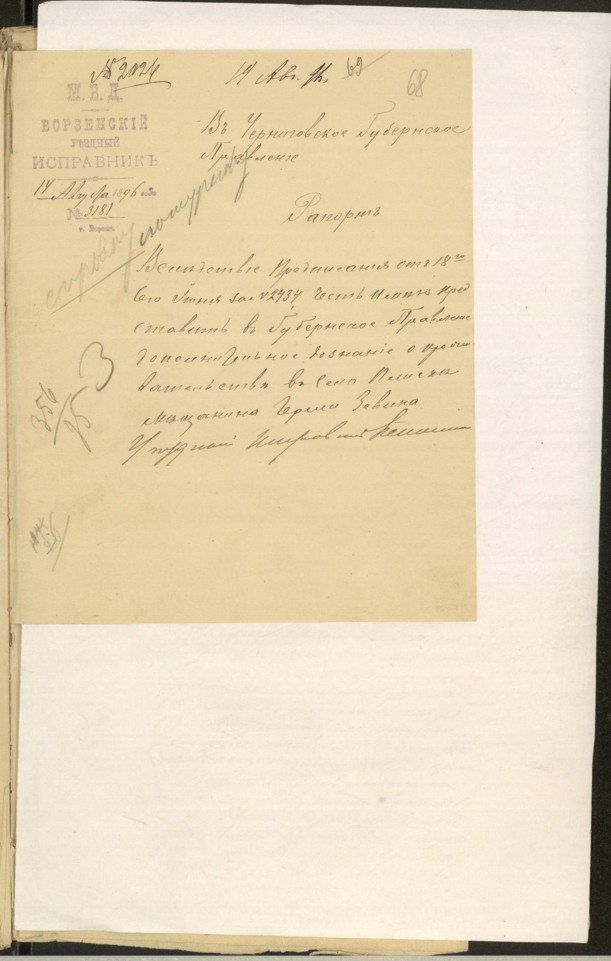 № 2024
19 Авг.
68
М. В. Д.
БОРЗЕНСКІЙ
УѢЗДНЫЙ
ИСПРАВНИКЪ
14 Августа 1896 года
№ 3181
г. Борзна
Въ Черниговское Губернское
Правленіе
Рапортъ
Вслѣдствіе Предписанія отъ 18го
Іюня за № 2734 честь имѣю пред
ставить въ Губернское Правленіе
дополнительное дознаніе о прожи
вательствѣ въ селѣ Плискахъ
мѣщанина Зевина
Уѣздный Исправникъ
356
95
3